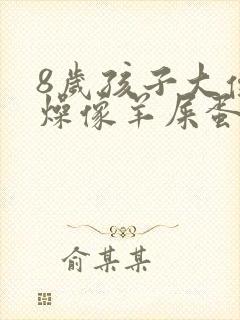 8歲孩子大便
燥像羊屎蛋
俞某某